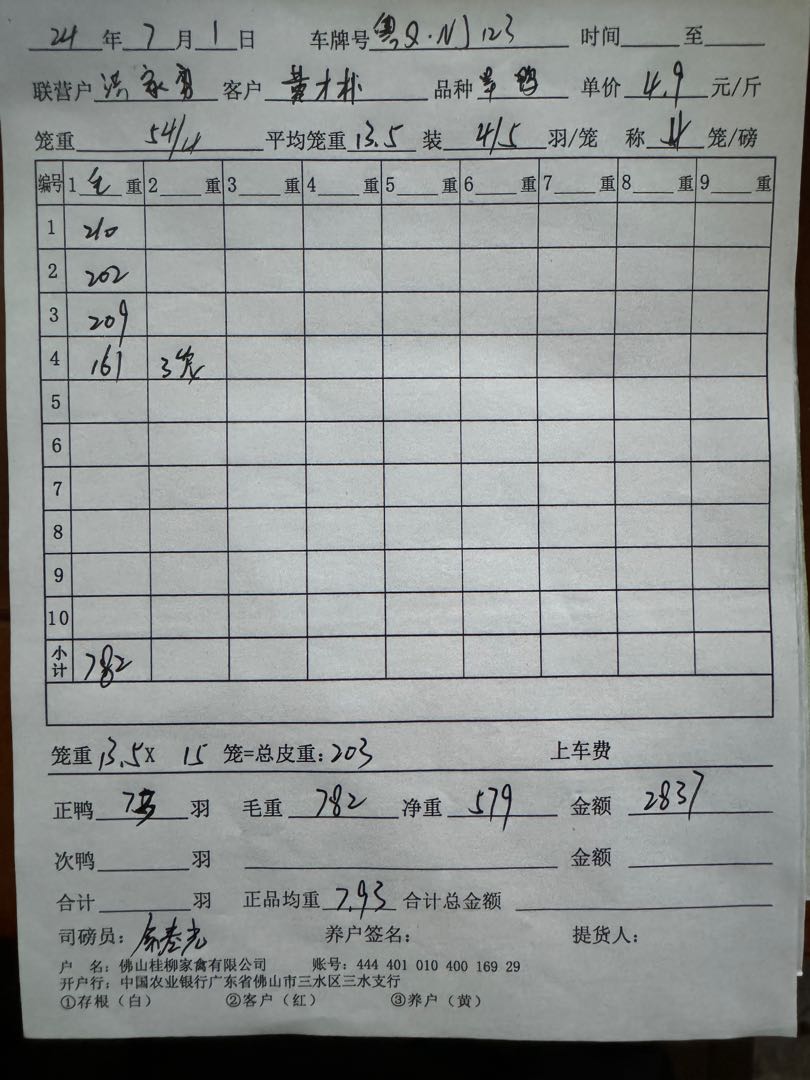 24 年 7 月 1 日 车牌号 粤Q·NJ123 时间 至
联营户 家 客户 黄才 品种 鸭 单价 4.9 元/斤
笼重 54/4 平均笼重 13.5 装 4/5 羽/笼 称 4 笼/磅
编号 1 毛 重 2 重 3 重 4 重 5 重 6 重 7 重 8 重 9 重
1 210
2 202
3 209
4 161 3笼
5
6
7
8
9
10
小计 782
笼重 13.5 X 15 笼=总皮重: 203 上车费
正鸭 羽 毛重 782 净重 579 金额 2837
次鸭 羽 金额
合计 羽 正品均重 7.93 合计总金额
司磅员: 养户签名: 提货人:
户 名: 佛山桂柳家禽有限公司 账号: 444 401 010 400 169 29
开户行: 中国农业银行广东省佛山市三水区三水支行
①存根(白) ②客户(红) ③养户(黄)